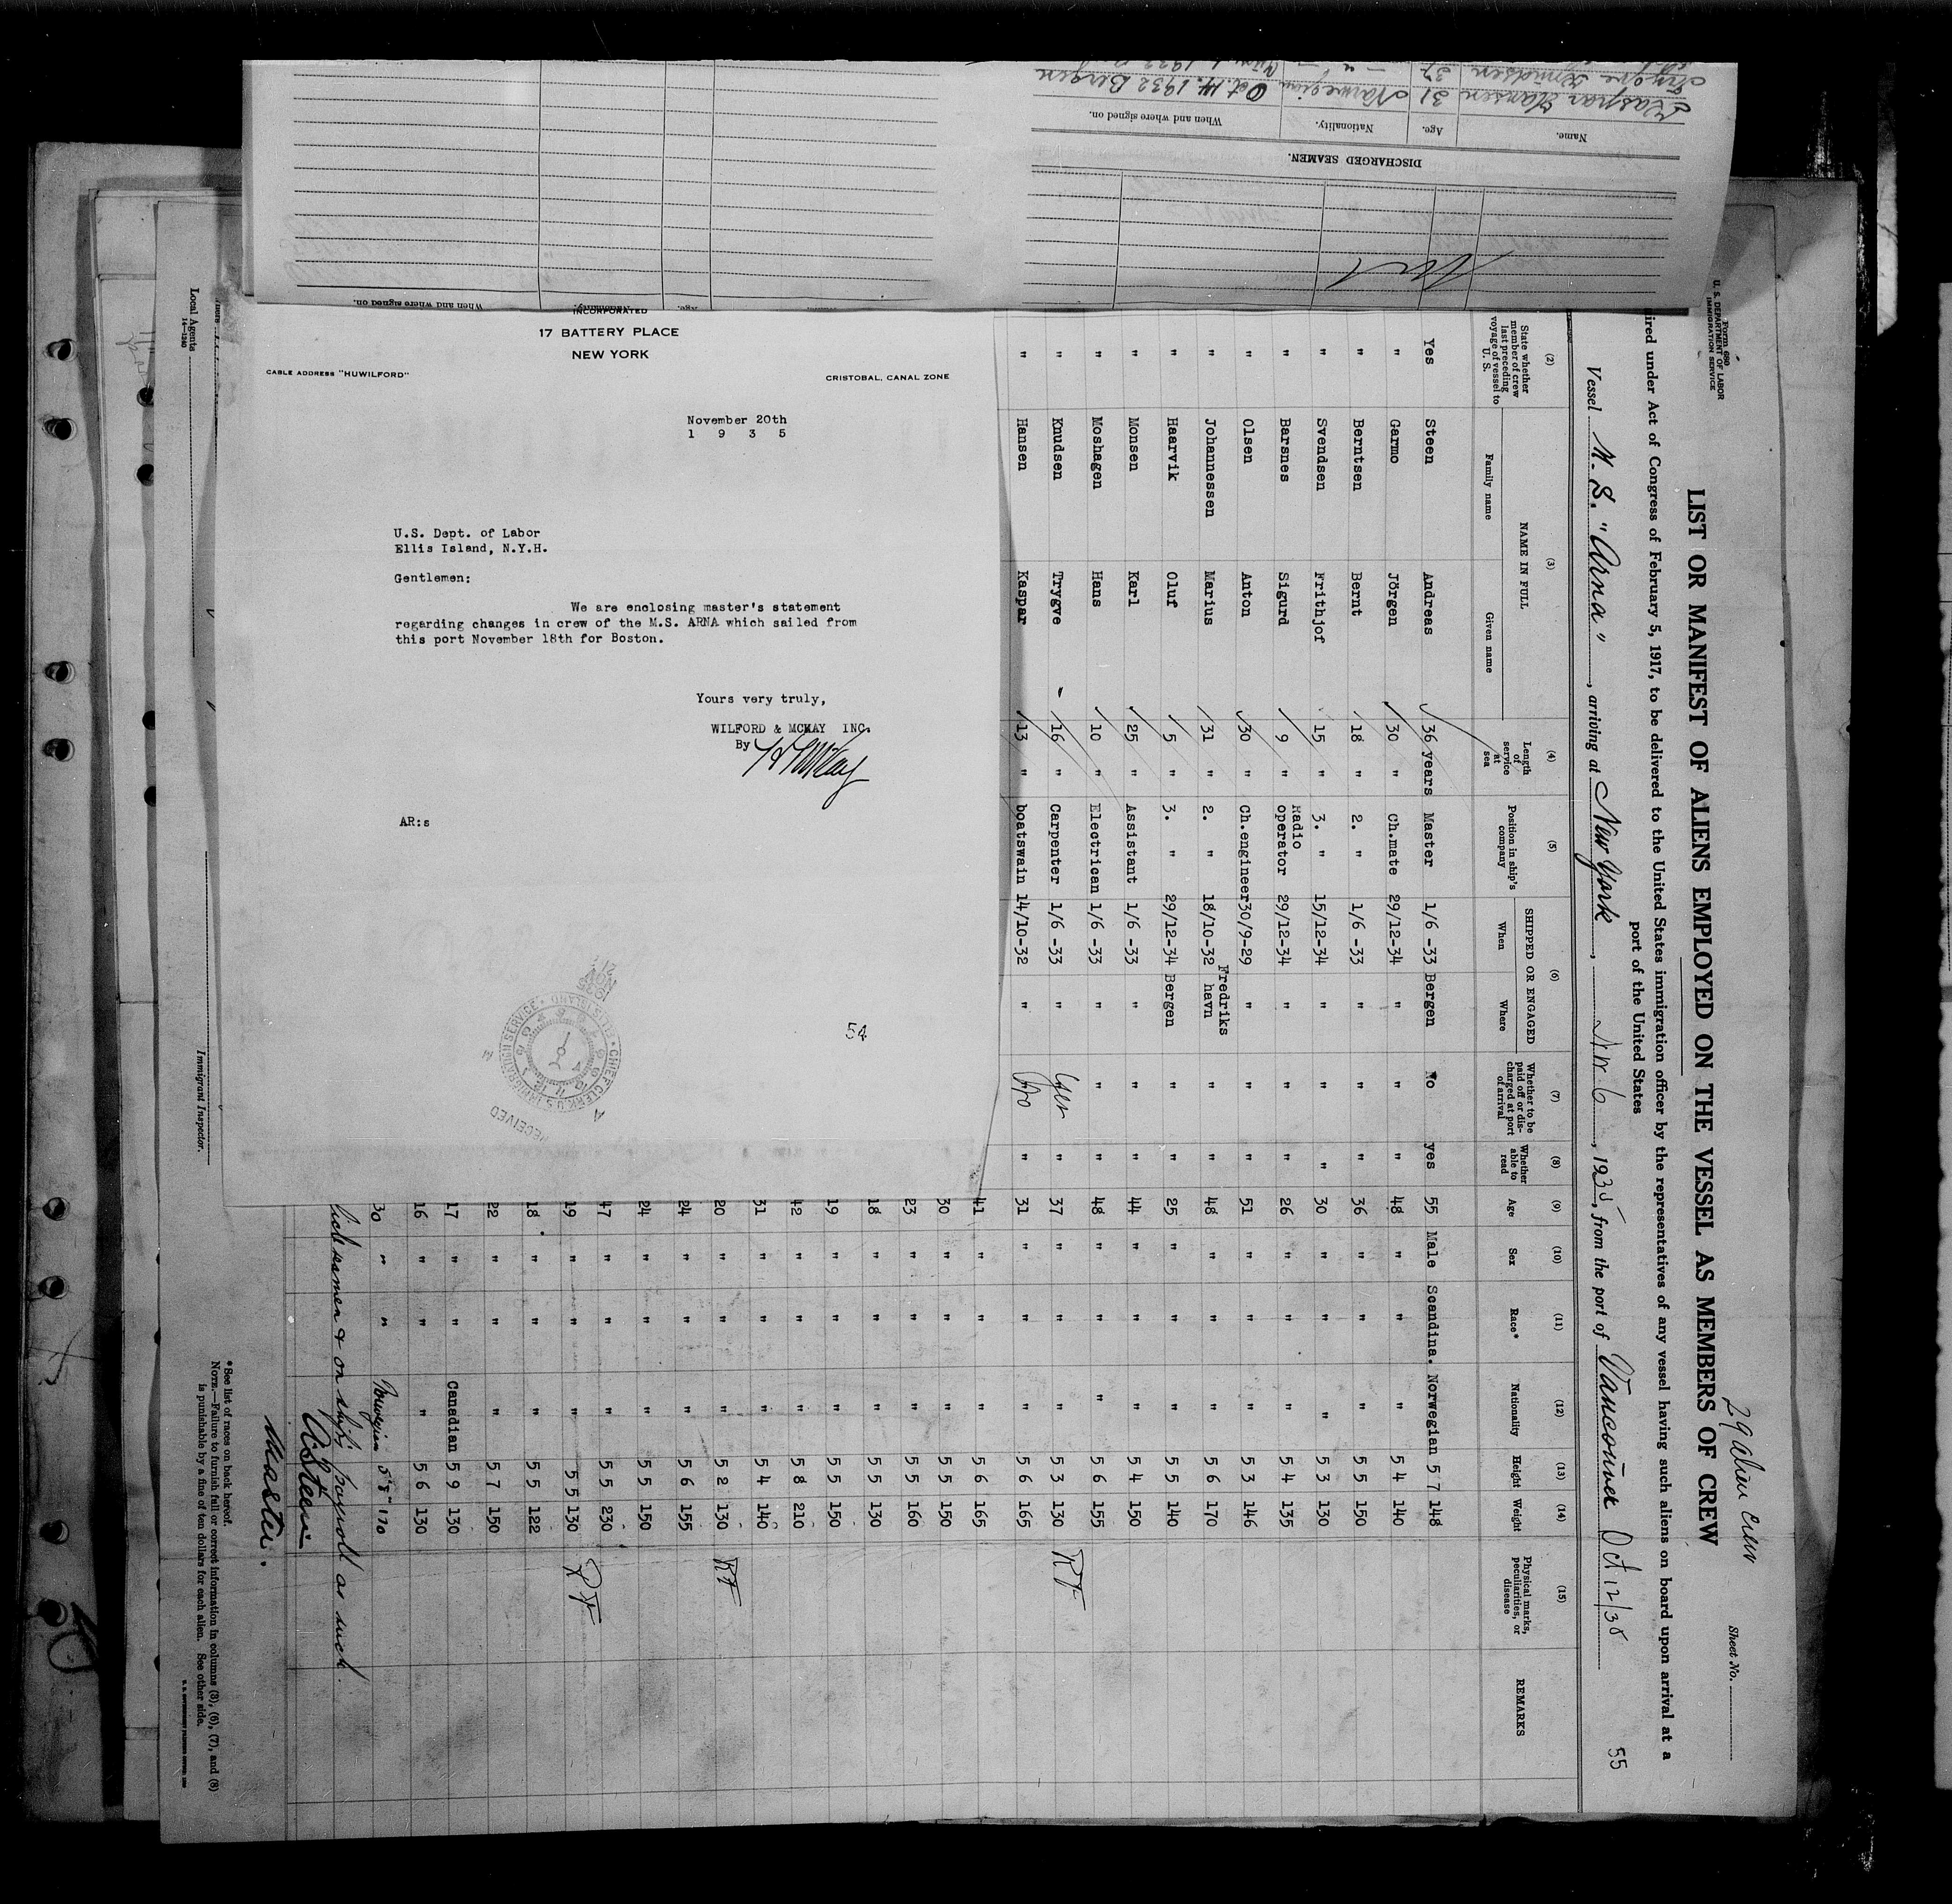 DISCHARGED SEAMEN.
Name.
Age.
Nationality.
When and where signed on.
Kaspar Hansen 31 Norwegian Oct. 14. 1932 Bergen
Trygve Knudsen 37
When and where signed on.
Nationality.
Age.
INCORPORATED
17 BATTERY PLACE
NEW YORK
CABLE ADDRESS "HUWILFORD"
CRISTOBAL, CANAL ZONE
November 20th
1 9 3 5
U.S. Dept. of Labor
Ellis Island, N.Y.H.
Gentlemen:
We are enclosing master's statement
regarding changes in crew of the M.S. ARNA which sailed from
this port November 18th for Boston.
Yours very truly,
WILFORD & MCKAY INC.
By
AR:s
54
RECEIVED
Form 680
U. S. DEPARTMENT OF LABOR
IMMIGRATION SERVICE
29 alien crew
Sheet No.
LIST OR MANIFEST OF ALIENS EMPLOYED ON THE VESSEL AS MEMBERS OF CREW
ired under Act of Congress of February 5, 1917, to be delivered to the United States immigration officer by the representatives of any vessel having such aliens on board upon arrival at a
port of the United States
Vessel M.S. "Arna", arriving at New York, Nov 6, 1935, from the port of Vancouver Oct 12/35
55
(2) (3) (4) (5) (6) (7) (8) (9) (10) (11) (12) (13) (14) (15)
State whether member of crew last preceding voyage of vessel to U. S.
NAME IN FULL
Family name
Given name
Length of service at sea
Position in ship's company
SHIPPED OR ENGAGED
When
Where
Whether to be paid off or discharged at port of arrival
Whether able to read
Age
Sex
Race*
Nationality
Height
Weight
Physical marks, peculiarities, or disease
REMARKS
Yes Steen Andreas 36 years Master 1/6 -33 Bergen No yes 55 Male Scandina. Norwegian 5 7 148
" Garmo Jörgen 30 " ch.mate 29/12-34 " " " 48 " " " 5 4 140
" Berntsen Bernt 18 " 2. " 1/6 -33 " " " 36 " " " 5 5 150
" Svendsen Frithjof 15 " 3. " 15/12-34 " " " 30 " " " 5 3 130
" Barsnes Sigurd 9 " Radio operator 29/12-34 " " " 26 " " " 5 4 135
" Olsen Anton 30 " Ch.engineer 30/9-29 " " " 51 " " " 5 3 146
" Johannessen Marius 31 " 2. " 18/10-32 Fredriks havn " " 48 " " " 5 6 170
" Haarvik Oluf 5 " 3. " 29/12-34 Bergen " " 25 " " " 5 5 140
" Monsen Karl 25 " Assistant 1/6 -33 " " " 44 " " " 5 4 150
" Moshagen Hans 10 " Electrican 1/6 -33 " " " 48 " " " 5 6 155
" Knudsen Trygve 16 " Carpenter 1/6 -33 " Yes " 37 " " " 5 3 130 RF
" Hansen Kaspar 13 " boatswain 14/10-32 " No " 31 " " " 5 6 165
41 " " " 5 6 165
30 " " " 5 5 150
23 " " " 5 5 160
18 " " " 5 5 130
19 " " " 5 5 150
42 " " " 5 8 210
31 " " " 5 4 140
20 " " " 5 2 130 RF
24 " " " 5 6 155
24 " " " 5 5 150
47 " " " 5 5 230
19 " " " 5 5 130 RF
18 " " " 5 5 122
22 " " " 5 7 150
17 " " Canadian 5 9 130
16 " " " 5 6 130
30 " " Norwegian 5'8" 170
seamen & on ship's payroll as such.
ASteen
Master.
*See list of races on back hereof.
NOTE.—Failure to furnish full or correct information in columns (3), (6), (7), and (8)
is punishable by a fine of ten dollars for each alien. See other side.
Immigrant Inspector.
Local Agents
14—1240